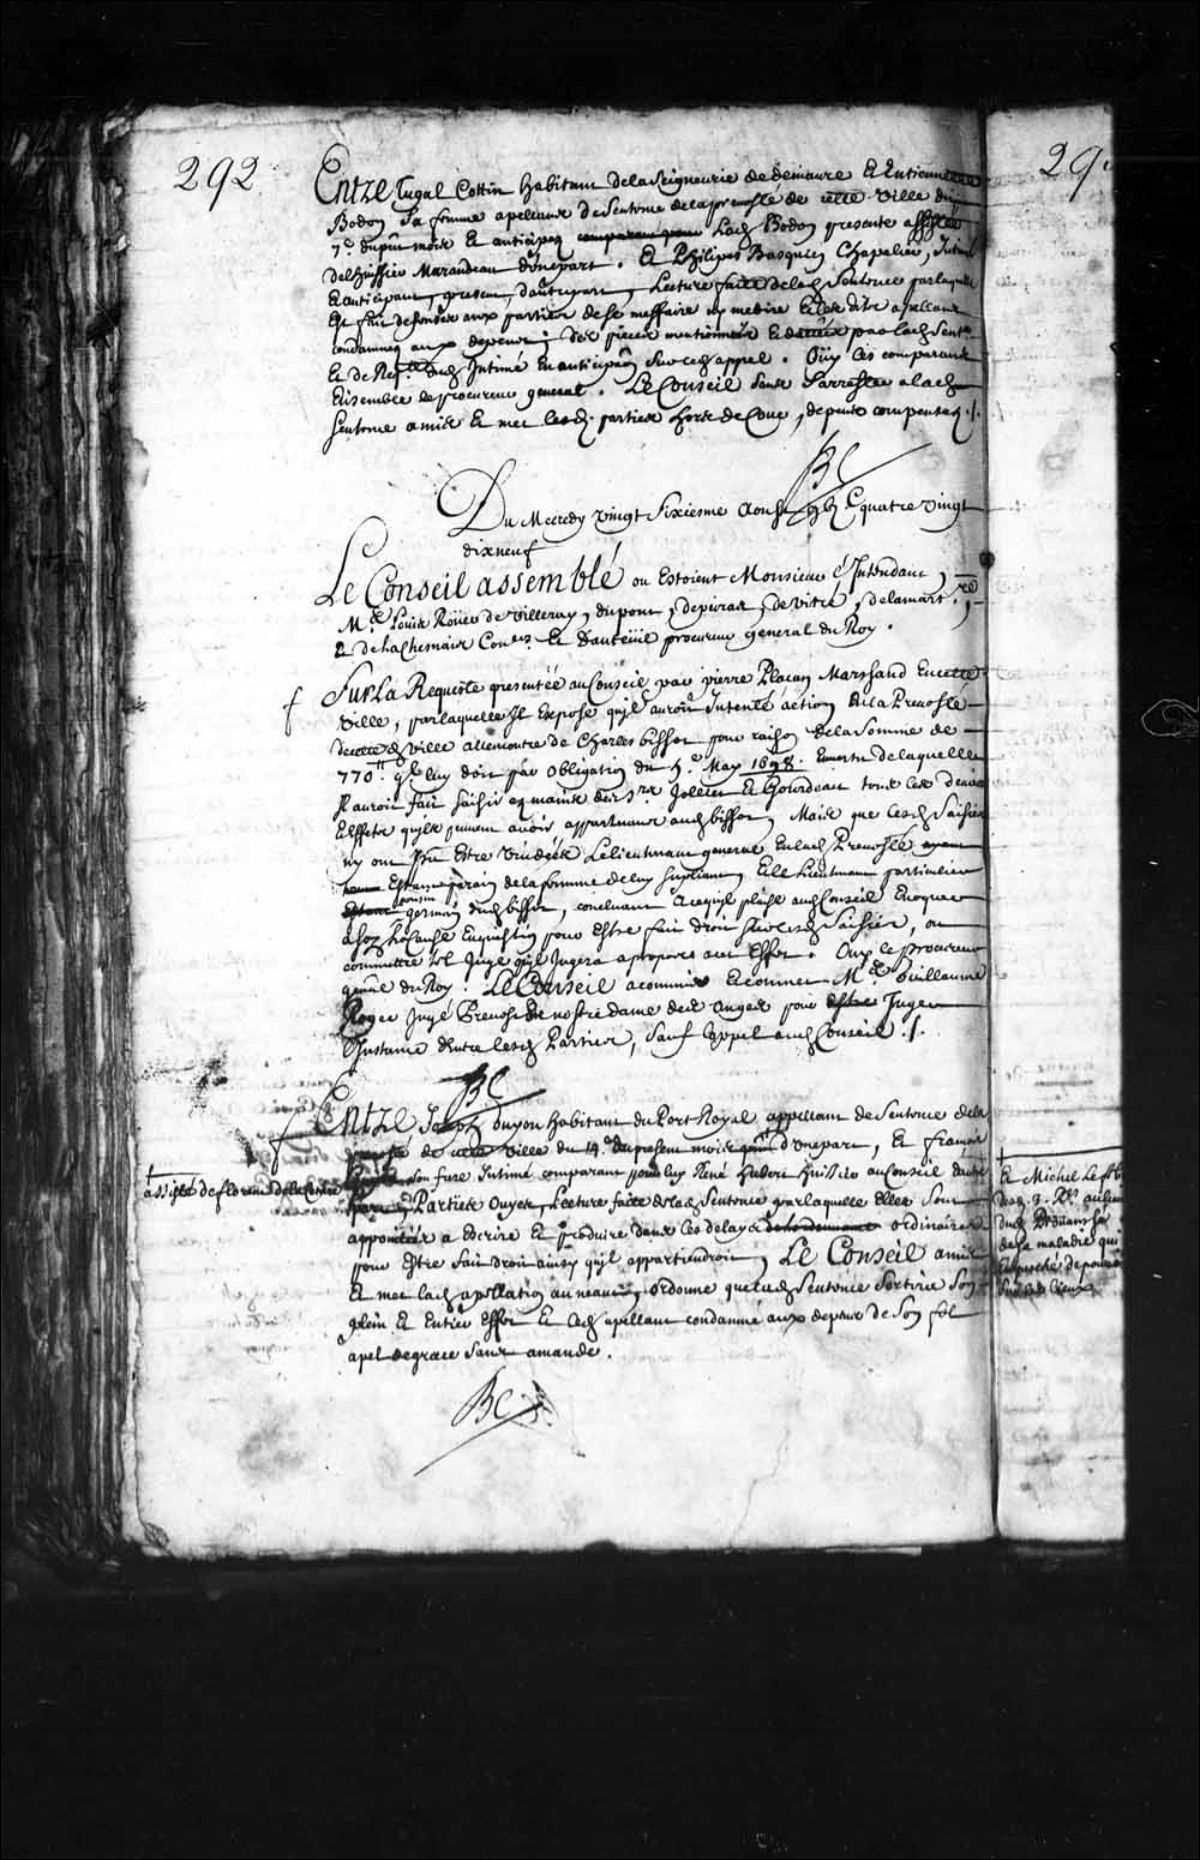 292
Entre Tugal Cottin habitant dela Seigneurie de demaure Et Entiennette
Bodon Sa femme apellans de Sentence dela prevosté de cette ville du
7e. du pnt mois Et anticipez comparant par lad Bodon presente assistée
de lhuissier Marandeau d'Une part. Et Philipes Basquin Chapelier, Intimé
Et anticipant, present, d'autre part, Lecture faite de lad Sentence par laquelle
Est fait defenses aux parties de se meffaire ny medire Et les dits apellans
condamnez aux depens, des pieces mentionnées Et dattées par lad Sentce.
Et de Reqte. dud Intimé En anticipaon Sur ced appel. Oüy les comparans
Ensemble le procureur general. Le Conseil Sans Sarrester a lad
Sentence a mis Et met lesd. parties hors de Cour, depens compensez ./.
BC
Du Mecredy vingt Sixiesme Aoust gbj C quatre vingt
dix neuf
Le Conseil assemblé ou Estoient Monsieur L'Intendant,
Mes Louis Roüer de Villeray, dupont, depeiras, devitré, delamartre,
& de la Chesnaie Coners. Et Dauteüil procureur general du Roy.
Sur La Requeste presentée au Conseil par pierre Plassan Marchand En cette
Ville, par laquelle Il Expose quil auroit Intenté action En la Prevosté
de cette d ville allencontre de Charles bissot pour raison dela Somme de
770 tt. ql. luy doit par obligation du 5e. May 1698. En vertu de laquelle
Il auroit fait saisir ez mains des Srs Jolliet Et Gourdeau tous les deniers
Et Effets quils peuvent avoir appartenans aud bissot, Mais que lesd Saisies
ny ont pu Estre vuidées Le lieutenant general En lad Prevosté
Estant parain de la femme de luy Supliant, Et le Lieutenant particulier
Estant cousin germain dud bissot, concluant a ce quil plaise aud Conseil Evoquer
a Soy la Cause En question pour Estre fait droit Sur lesd Saisies, ou
commettre tel Juge quil Jugera a propos a cet Effet. Ouy le procureur
gnäl du Roy. Le Conseil a commis Et commet Me Guillaume
Roger Juge Prevost de nostre dame des Anges pour Estre Juger
L'Instance d'Entre lesd Parties, Sauf l'appel aud Conseil ./.
BC
Entre Joseph Guyon habitant du Port Royal appellant de Sentence dela
prevosté de cette Ville du 14e. du present mois d'Une part, Et françois
Son frere Intimé comparant pour luy René Hubert huissier au Conseil d'autre
+ assisté de florent dela Cetiere
part, Parties Ouyes, Lecture faite de lad Sentence par laquelle Elles Sont
appointées a Escrire Et produire dans les delays de lordonnance ordinaires
pour Estre fait droit ainsy quil appartiendroit, Le Conseil a mis
Et met lad apellation au neant, Ordonne que lad Sentence Sortira Son
plein Et Entier Effet Et led apellant condamné aux depens de Son fol
apel de grace Sans amande.
BC
29
Et Michel Le
de sa maladie qui
Empesché de pouvoir